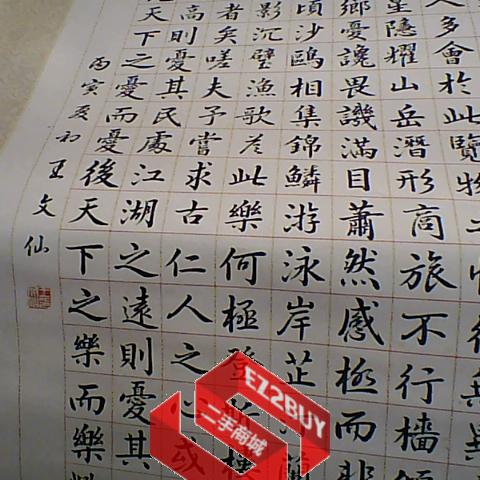 多會於此覽物
星隱耀山岳潛形商旅不行檣
鄉憂讒畏譏滿目蕭然感極而悲
頃沙鷗相集錦鱗游泳岸芷汀蘭
影沉璧漁歌荅此樂何極登斯樓
者矣嗟夫予嘗求古仁人之心或
高則憂其民處江湖之遠則憂其
天下之憂而憂後天下之樂而樂
丙寅夏初王文仙
EZ2BUY
二手商城